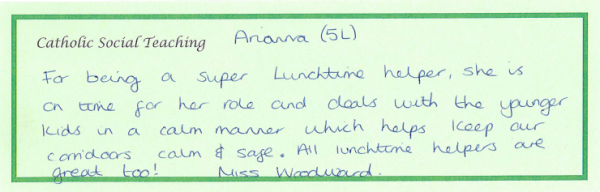 Catholic Social Teaching Arianna (5L)
For being a super Lunchtime helper, she is
on time for her role and deals with the younger
kids in a calm manner which helps keep our
corridoors calm & safe. All lunchtime helpers are
great too! Miss Woodward.